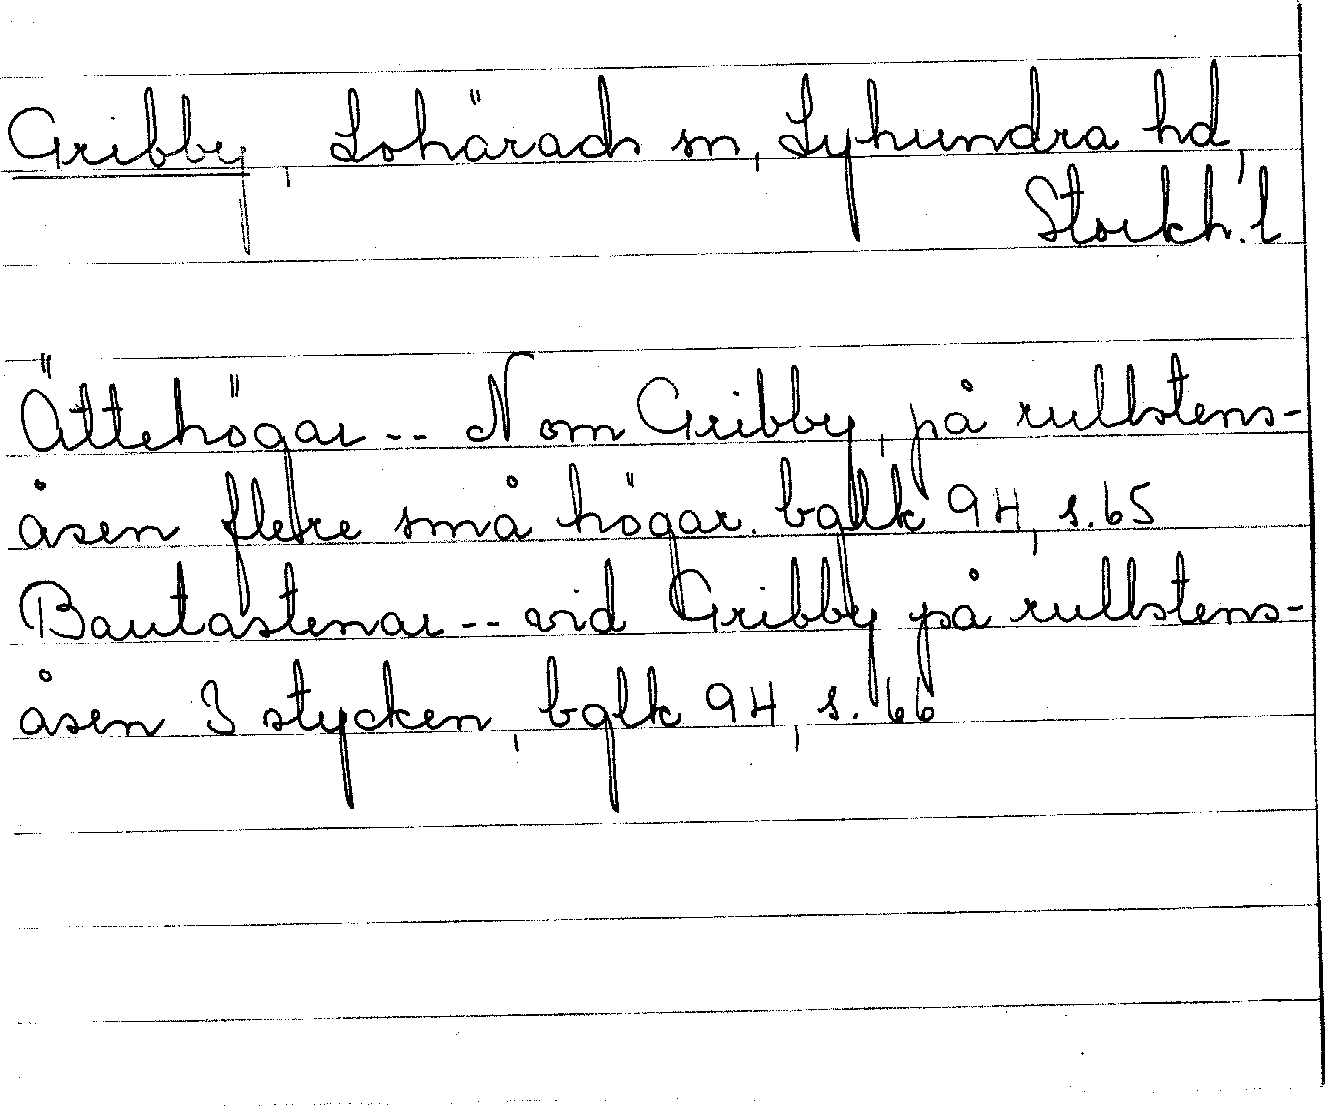 Gribby, Lohärads sn, Lyhundra hd,
Stockh. l
Ättehögar -- N om Gribby, på rullstens-
åsen flere små högar. bglk 94, s. 65
Bautastenar -- vid Gribby på rullstens-
åsen 3 stycken, bglk 94, s. 66